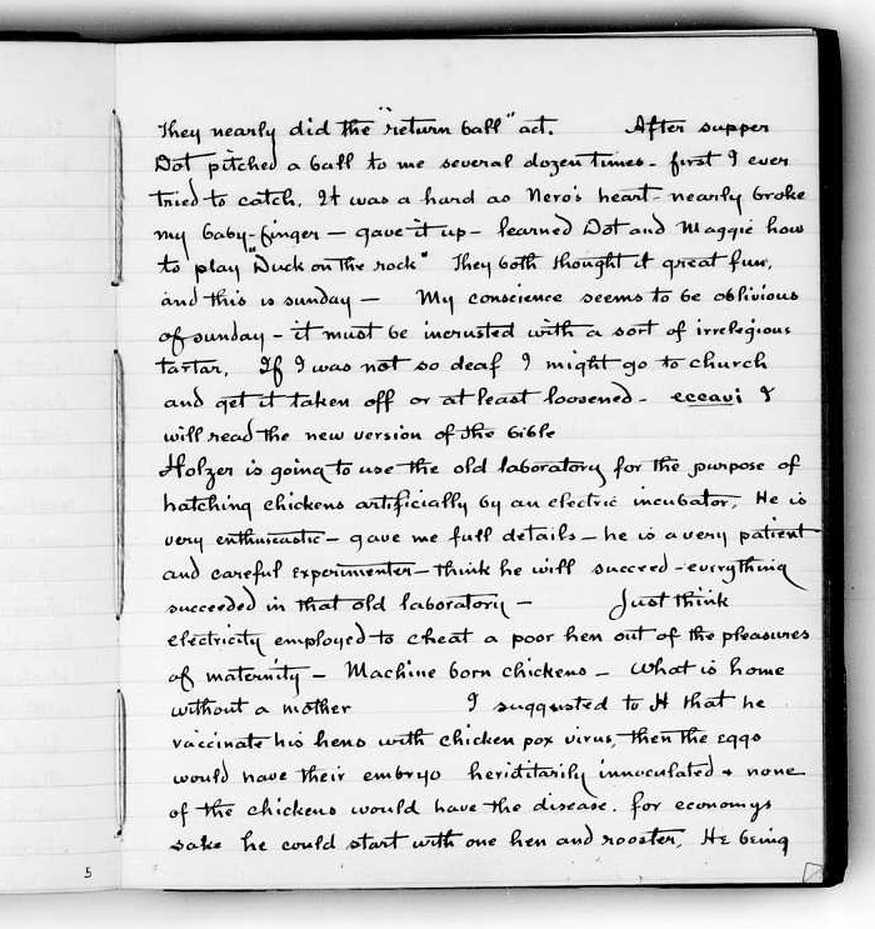 They nearly did the "return ball" act. After supper
Dot pitched a ball to me several dozen times - first I ever
tried to catch. It was a hard as Nero's heart - nearly broke
my baby-finger — gave it up - learned Dot and Maggie how
to play "Duck on the rock" They both thought it great fun,
and this is sunday — My conscience seems to be oblivious
of sunday - it must be incrusted with a sort of irrelegious
tartar. If I was not so deaf I might go to church
and get it taken off or at least loosened - eccavi I
will read the new version of the bible
Holzer is going to use the old laboratory for the purpose of
hatching chickens artificially by an electric incubator. He is
very enthusiastic — gave me full details — he is a very patient
and careful experimenter — think he will succeed - everything
succeeded in that old laboratory — Just think
electricity employed to cheat a poor hen out of the pleasures
of maternity — Machine born chickens — What is home
without a mother I suggested to H that he
vaccinate his hens with chicken pox virus, then the eggs
would have their embryo heriditarily innoculated & none
of the chickens would have the disease. for economys
sake he could start with one hen and rooster. He being
5